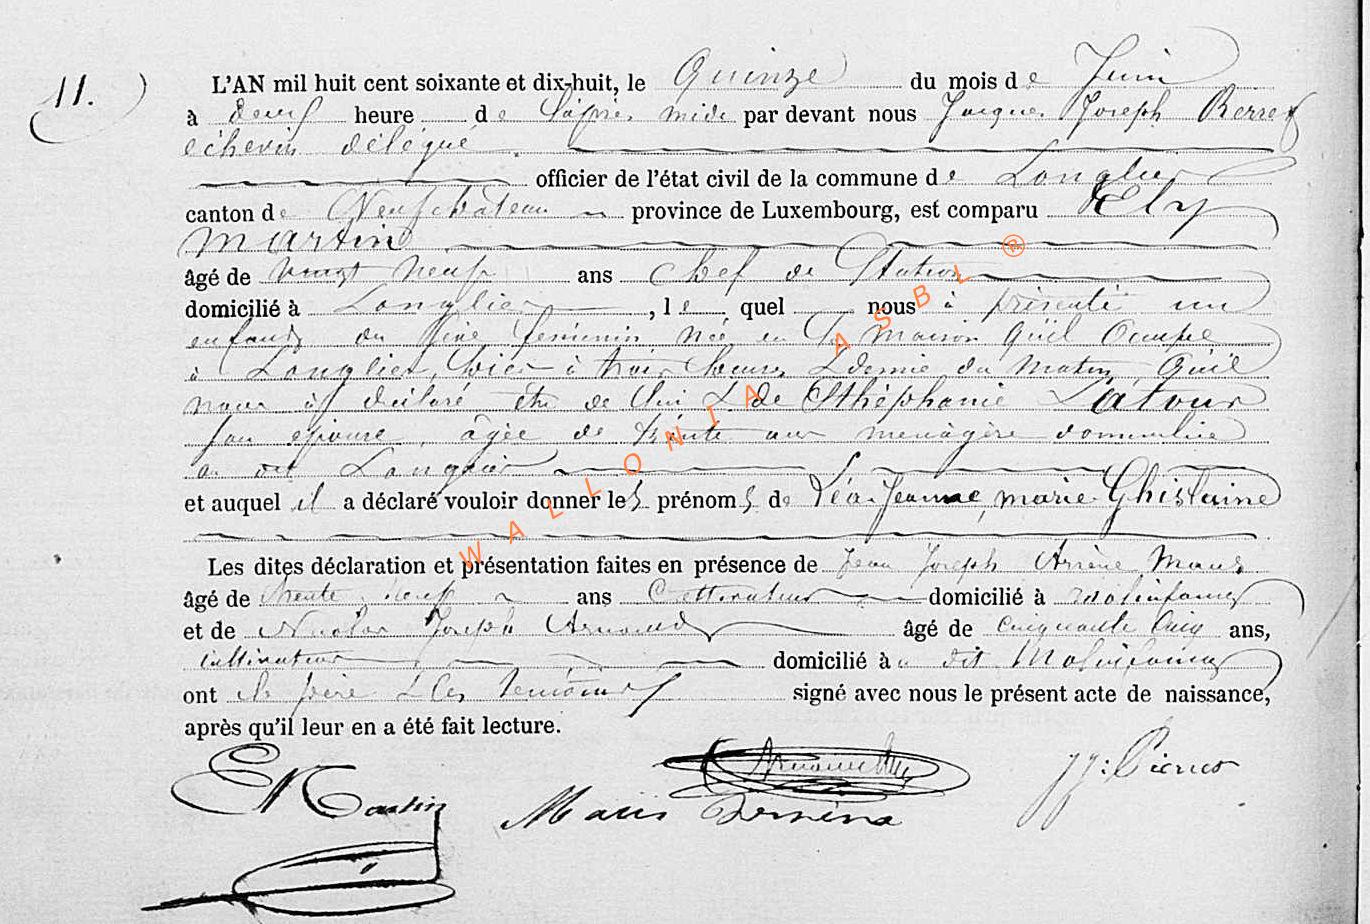 11.
L'AN mil huit cent soixante et dix-huit, le Quinze du mois de Juin
à deux heure de l'après midi par devant nous Jacques Joseph
échevin délégué
officier de l'état civil de la commune de Longlier
canton de Neufchâteau province de Luxembourg, est comparu Ely
Martin
âgé de vingt neuf ans Chef de Station
domicilié à Longlier, le quel nous à présenté un
enfant du sexe féminin née en la maison qu'il occupe
à Longlier, hier à trois heures & demie du matin, qu'il
nous à déclaré être de lui & de Sthéphanie Latour
son épouse, âgée de trente ans menàgère domiciliée
au dit Longlier
et auquel il a déclaré vouloir donner les prénoms de Léa Jeanne, marie Ghislaine
Les dites déclaration et présentation faites en présence de Jean Joseph Maus
âgé de trente neuf ans Cultivateur domicilié à molinfaing
et de Nicolas Joseph Arnould âgé de cinquante cinq ans,
cultivateur domicilié à u dit Molinfaing
ont le père & les témoins signé avec nous le présent acte de naissance,
après qu'il leur en a été fait lecture.
E Martin
JJ: Pierret
WALLONIA ASBL ®